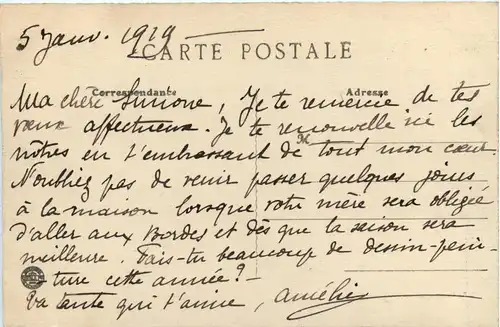 5 Janv. 1919
CARTE POSTALE
Correspondance
Adresse
Ma chère Simone, Je te remercie de tes
vœux affectueux. Je te renouvelle ici les
nôtres en t'embrassant de tout mon cœur
N'oubliez pas de venir passer quelques jours
à la maison lorsque votre mère sera obligée
d'aller aux Bordes et dès que la saison sera
meilleure. Fais-tu beaucoup de dessin-pein-
ture cette année ? -
Ta tante qui t'aime, Amélie